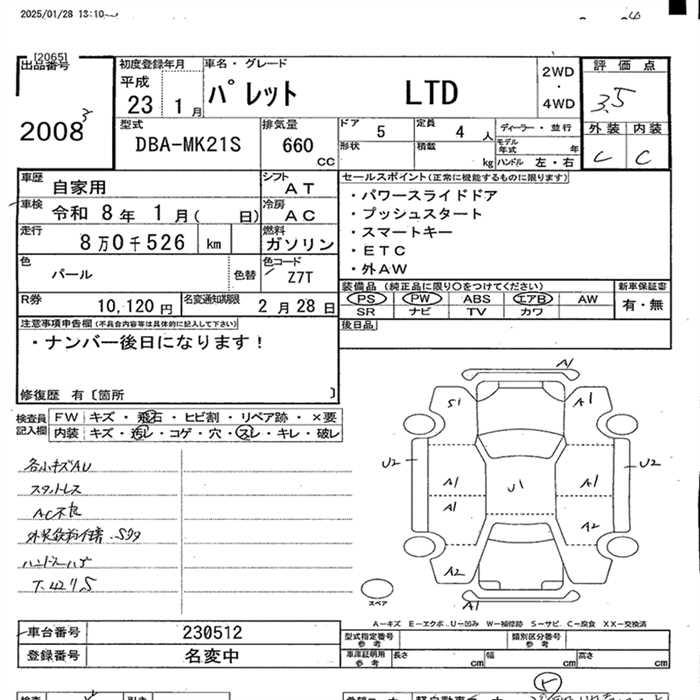 2025/01/28 13:10
[2065]
出品番号
2008
3
初度登録年月
平成
23 1月
車名・グレード
パレット LTD
2WD
・
4WD
評価点
3.5
外装 内装
C C
型式
DBA-MK21S
排気量
660
CC
ドア
5
定員
4 人
ディーラー・並行
モデル年式 年
形状
積載
kg
ハンドル 左・右
車歴
自家用
シフト
AT
車検
令和 8年 1月( 日)
冷房
AC
走行
8万0千526 km
燃料
ガソリン
色
パール
色替
色コード
Z7T
R券
10,120円
名変通知期限
2月28日
セールスポイント(正常に機能するものに限ります)
・パワースライドドア
・プッシュスタート
・スマートキー
・ETC
・外AW
装備品 (純正品に限り〇をつけてください)
PS PW ABS エアB AW
SR ナビ TV カワ
新車保証書
有・無
後日品
注意事項申告欄(不具合内容等は具体的に記入して下さい)
・ナンバー後日になります!
修復歴 有〔箇所 〕
検査員
記入欄
FW キズ・飛石・ヒビ割・リペア跡・×要
内装 キズ・汚レ・コゲ・穴・スレ・キレ・破レ
各小キズAU
スタットレス
AC不良
A1
S1
A1
U2
U2
A1
A1
U1
A1
A2
A2
A1
スペア
A―キズ E―エクボ U―凹み W―補修跡 S―サビ C―腐食 XX―交換済
車台番号
230512
登録番号
名変中
型式指定番号
参考
類別区分番号
参考
車庫証明用
参考
長さ cm
幅 cm
高さ cm